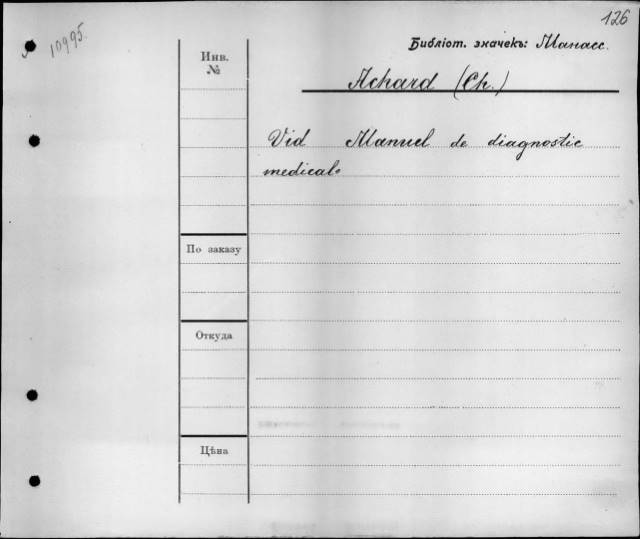 126
10995.
Библіот. значекъ: Манасс.
Инв.
№
Achard (Ch.)
Vid Manuel de diagnostic
medical.
По заказу
Откуда
Цѣна